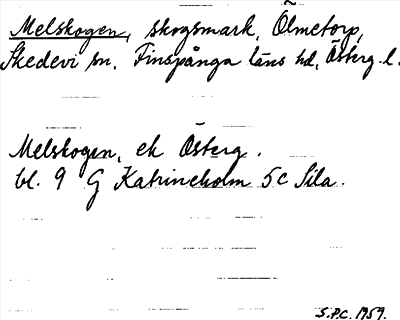 Melskogen, skogsmark, Ölmetorp,
Skedevi sn. Finspånga läns hd, Österg. l.
Melskogen, ek Österg.
bl. 9 G Katrineholm 5c Sila.
S.P.C. 1959.